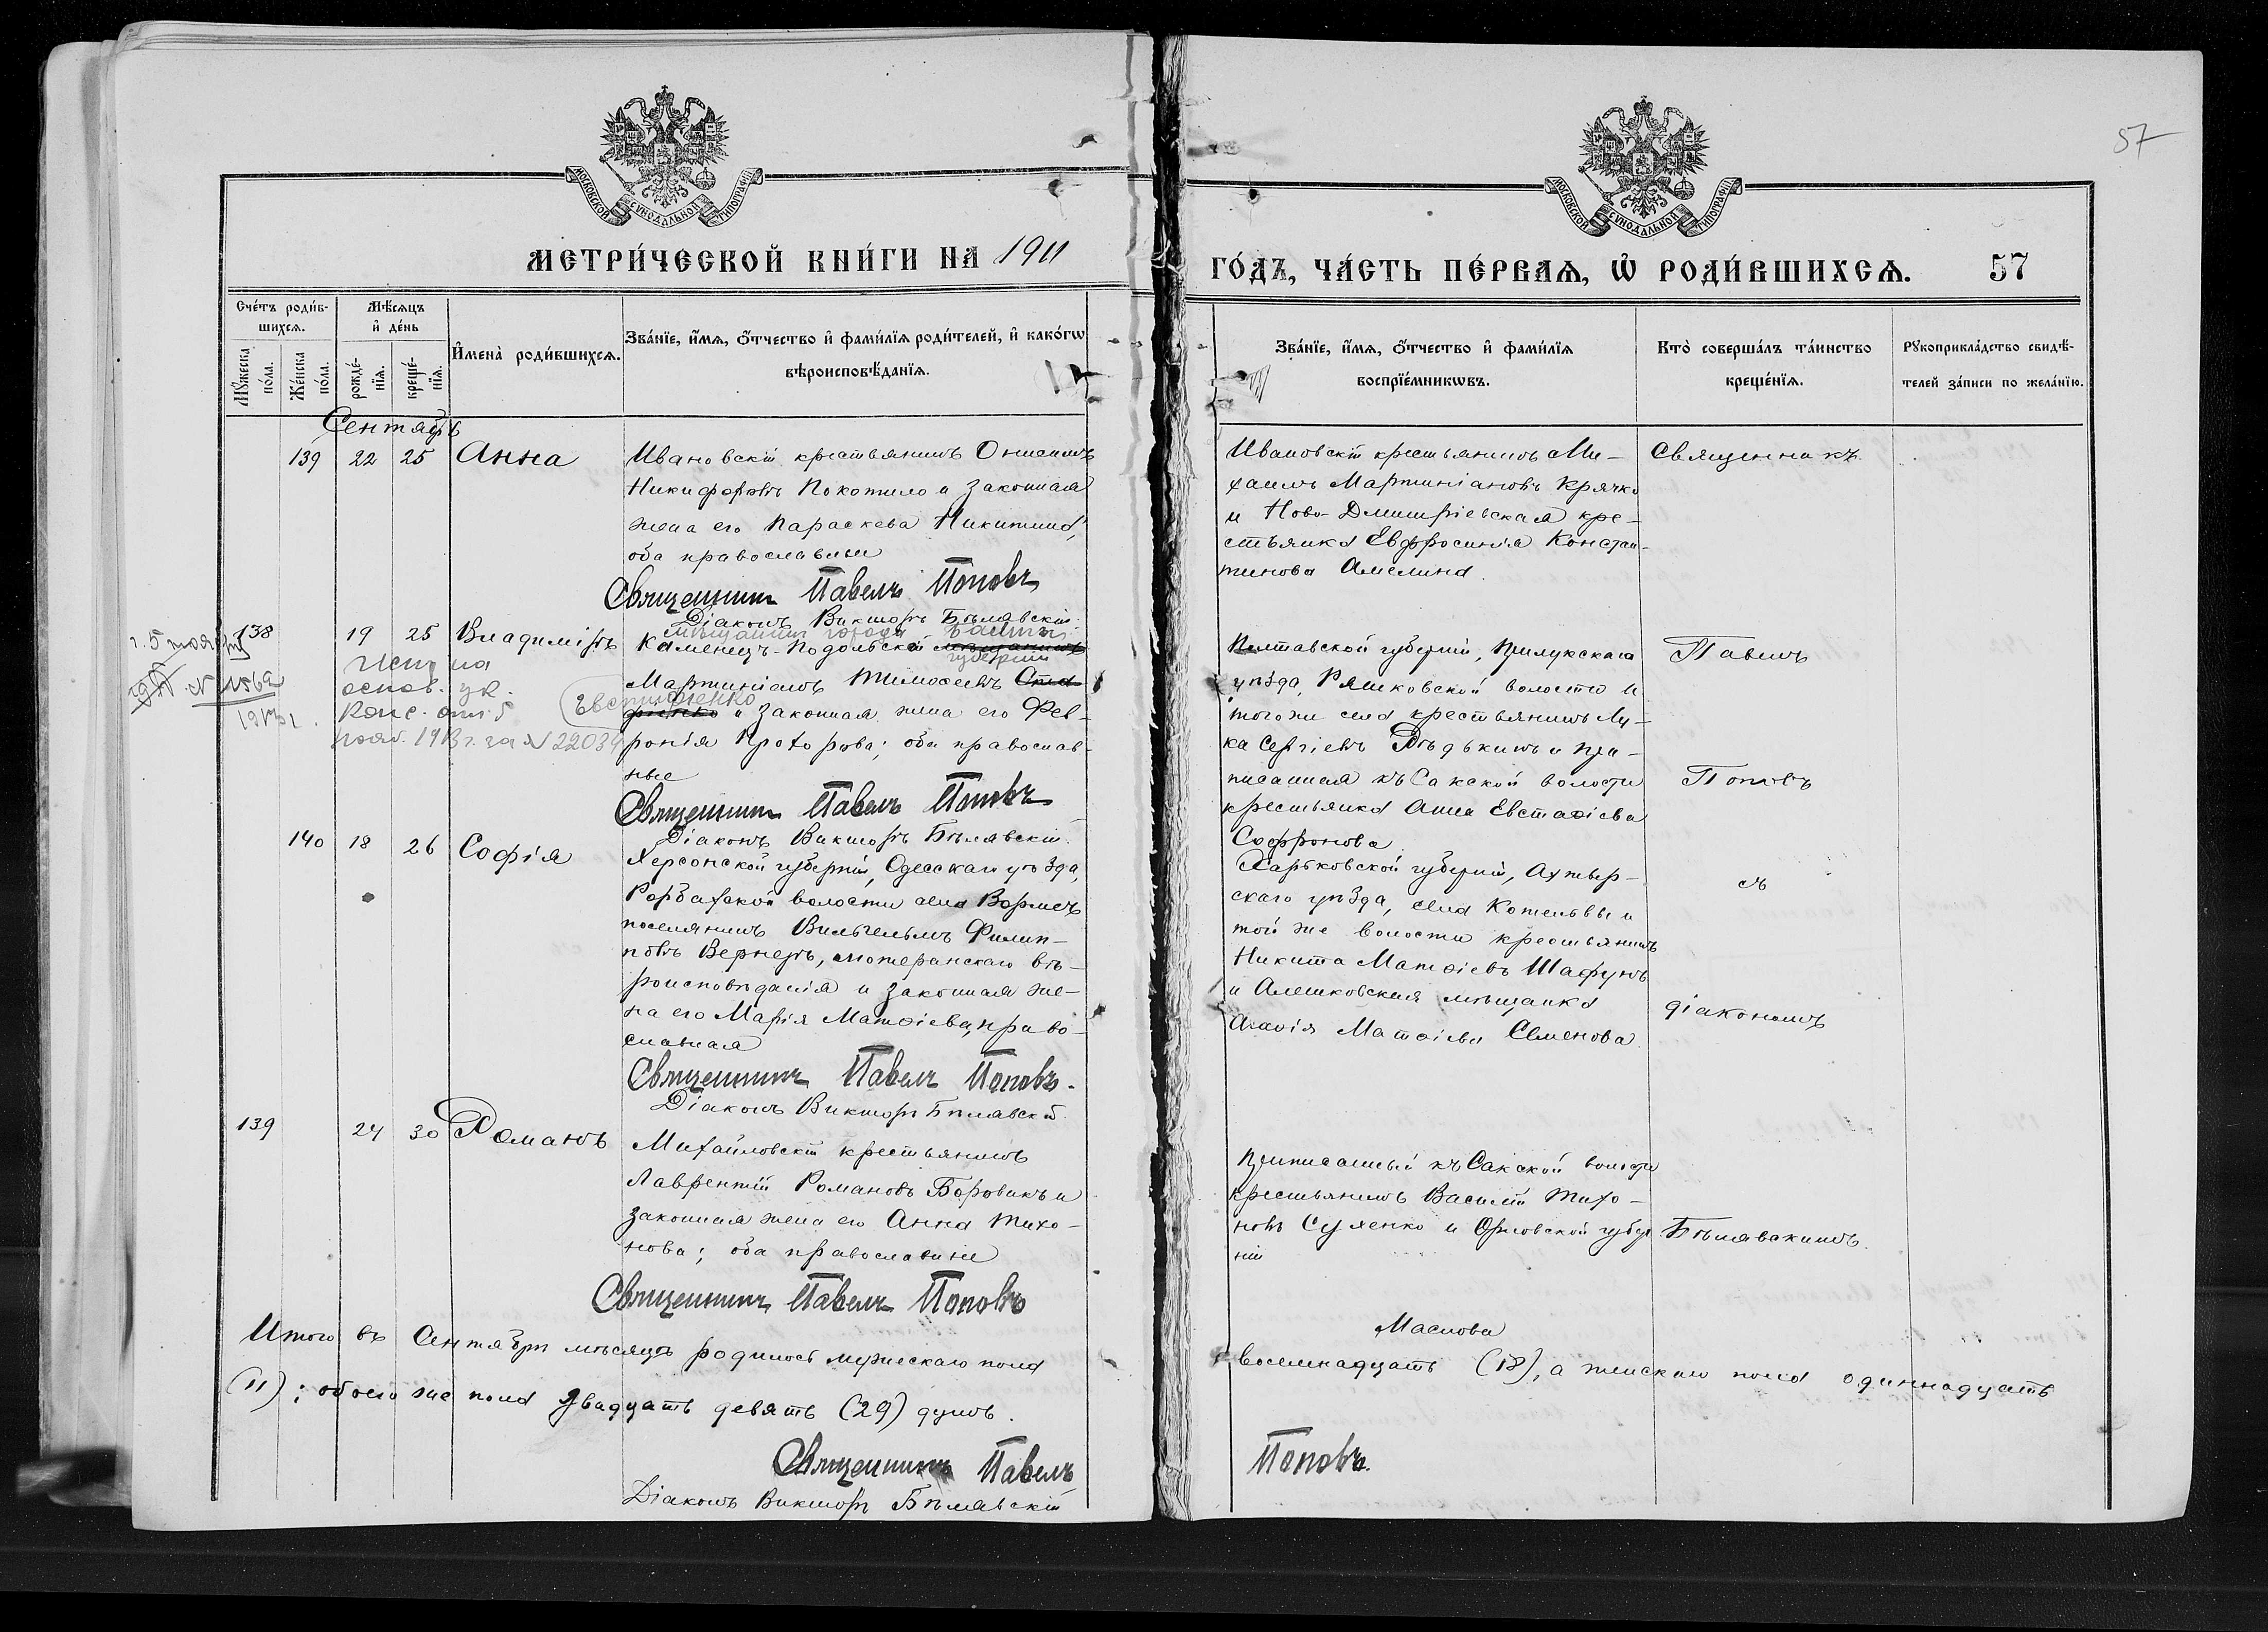 МОСКОВСКОЙ СѴНОДАЛЬНОЙ ТИПОГРАФІИ
МЕТРИ́ЧЕСКОЙ КНИ́ГИ НА 1911
Сче́тъ роди́в-
шихсѧ.
Мꙋ́жеска по́ла.
Же́нска по́ла.
Мѣ́сѧцъ
и҆ де́нь
рожде́-
нїѧ.
креще́-
нїѧ.
И҆мена̀ роди́вшихсѧ.
Зва́нїе, и҆́мѧ, ѻ҆́тчество и҆ фами́лїѧ роди́телей, и҆ како́гѡ
вѣроисповѣ́данїѧ.
Сентябрь
139 22 25 Анна
Ивановскій крестьянинъ Онисимъ
Никифоровъ Покотило и законная
жена его Параскева Никитина,
оба православные
Священникъ Павелъ Поповъ
Діаконъ Викторъ Бѣлявскій
138 19 25 Владиміръ
мѣщанинъ города Балты
Каменецъ-Подольской мѣщанинъ
губерніи
Мартиніанъ Тимоѳеевъ Ста-
Евстафіенко
фіенко и законная жена его Фев-
ронія Прохорова; оба православ-
ные
г. 5 ноября
№ 11569
1913 г.
Исп. на
основ. ук.
Конс. отъ 5
нояб. 1913 г. за № 22034
Священникъ Павелъ Поповъ
Діаконъ Викторъ Бѣлявскій
140 18 26 Софія
Херсонской губерніи, Одесскаго уѣзда,
Рорбахской волости села Вормсъ
поселянинъ Вильгельмъ Филип-
повъ Вернеръ, лютеранскаго вѣ-
роисповѣданія и законная же-
на его Марія Матѳіева, право-
славная
Священникъ Павелъ Поповъ.
Діаконъ Викторъ Бѣлявскій
139 24 30 Романъ
Михайловскій крестьянинъ
Лаврентій Романовъ Боровикъ и
законная жена его Анна Тихо-
нова; оба православные
Священникъ Павелъ Поповъ
Итого въ Сентябрѣ мѣсяцѣ родилось мужескаго пола
(11); обоего же пола двадцать девять (29) душъ.
Священникъ Павелъ
Діаконъ Викторъ Бѣлявскій
57
МОСКОВСКОЙ СѴНОДАЛЬНОЙ ТИПОГРАФІИ
ГО́ДЪ, ЧА́СТЬ ПЕ́РВАѦ, Ѡ҆ РОДИ́ВШИХСѦ. 57
Зва́нїе, и҆́мѧ, ѻ҆́тчество и҆ фами́лїѧ
воспрїе́мникѡвъ.
Кто̀ соверша́лъ та́инство
креще́нїѧ.
Рꙋкоприкла́дство свидѣ́-
телей за́писи по жела́нїю.
Ивановскій крестьянинъ Ми-
хаилъ Мартиніановъ Крячко
и Ново-Дмитріевская кре-
стьянка Евфросинія Констан-
тинова Амелина.
Священникъ
Полтавской губерніи, Прилукскаго
уѣзда, Ряшковской волости и
того же села крестьянинъ Лу-
ка Сергіевъ Рѣдькинъ и при-
писанная къ Сакской волости
крестьянка Анна Евстаѳіева
Софронова
Павелъ
Поповъ
Харьковской губерніи, Ахтыр-
скаго уѣзда, села Котельвы и
той же волости крестьянинъ
Никита Матѳіевъ Шафунъ
и Алешковская мѣщанка
Агаѳія Матѳіева Семенова.
съ
діакономъ
Приписанный къ Сакской волости
крестьянинъ Василій Тихо-
новъ Суленко и Орловской губер
ніи
Маслова
Бѣлявскимъ.
восемнадцать (18), а женскаго пола одиннадцать
Поповъ.